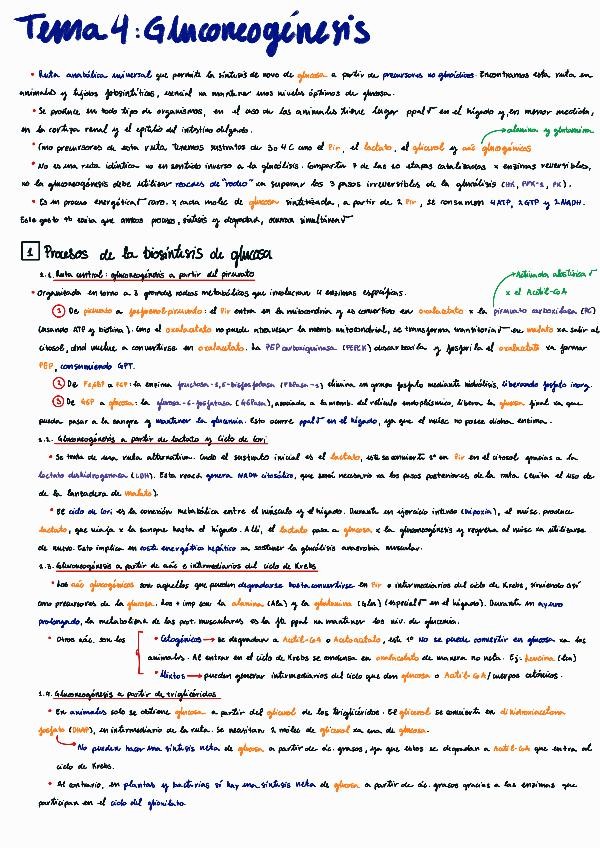 Tema 4: Gluconeogénesis
• Ruta anabólica universal que permite la síntesis de novo de glucosa a partir de precursores no glucídicos. Encontramos esta ruta en
animales y tejidos fotosintéticos, esencial xa mantener unos niveles óptimos de glucosa.
• Se produce en todo tipo de organismos, en el caso de los animales tiene lugar ppal√ en el hígado y, en menor medida,
en la corteza renal y el epitelio del intestino delgado.
→ alanina y glutamina
• Como precursores de esta ruta tenemos sustratos de 3 o 4 C como el Pir, el lactato, el glicerol y aác glucogénicos
• No es una ruta idéntica ni en sentido inverso a la glucólisis. Comparten 7 de las 10 etapas catalizadas x enzimas reversibles,
xo la gluconeogénesis debe utilizar reacc de "rodeo" xa superar los 3 pasos irreversibles de la glucólisis (HK, PFK-1, PK).
• Es un proceso energética√ caro. x cada mole de glucosa sintetizada, a partir de 2 Pir, se consumen 4 ATP, 2 GTP y 2 NADH.
Este gasto evita que ambos procesos, síntesis y degradac, ocurran simultánea√
1 Procesos de la biosíntesis de glucosa
1.1. Ruta central: gluconeogénesis a partir del piruvato
→ Activada alostérica√
x el Acetil-CoA
• Organizada en torno a 3 grandes rodeos metabólicos que involucran 4 enzimas específicas.
① De piruvato a fosfoenolpiruvato: el Pir entra en la mitocondria y es convertido en oxalacetato x la piruvato carboxilasa (PC)
(usando ATP y biotina). Como el oxalacetato no puede atravesar la memb. mitocondrial, se transforma transitoria√ en malato xa salir al
citosol, dnd vuelve a convertirse en oxalacetato. La PEP carboxiquinasa (PEPCK) descarboxila y fosforila el oxalacetato xa formar
PEP, consumiendo GTP.
② De F1,6BP a F6P: la enzima fructosa-1,6-bisfosfatasa (FBPasa-1) elimina un grupo fosfato mediante hidrólisis, liberando fosfato inorg.
③ De G6P a glucosa: la glucosa-6-fosfatasa (G6Pasa), asociada a la memb. del retículo endoplásmico, libera la glucosa final xa que
pueda pasar a la sangre y mantener la glucemia. Esto ocurre ppal√ en el hígado, ya que el músc no posee dicha enzima.
1.2. Gluconeogénesis a partir de lactato y ciclo de Cori
• Se trata de una ruta alternativa. Cndo el sustrato inicial es el lactato, este se convierte 1º en Pir en el citosol gracias a la
lactato deshidrogenasa (LDH). Esta reacc genera NADH citosólico, que será necesario xa los pasos posteriores de la ruta (evita el uso de
de la lanzadera de malato).
• El ciclo de Cori es la conexión metabólica entre el músculo y el hígado. Durante un ejercicio intenso (hipoxia), el músc. produce
lactato, que viaja x la sangre hasta el hígado. Allí, el lactato pasa a glucosa x la gluconeogénesis y regresa al músc xa utilizarse
de nuevo. Esto implica un coste energético hepático xa sostener la glucólisis anaerobia muscular.
1.3. Gluconeogénesis a partir de aác e intermediarios del ciclo de Krebs
• Los aác glucogénicos son aquellos que pueden degradarse hasta convertirse en Pir o intermediarios del ciclo de Krebs, sirviendo así
como precursores de la glucosa. Los + imp son la alanina (Ala) y la glutamina (Gln) (especial√ en el hígado). Durante un ayuno
prolongado, la metaboliza de las prot. musculares es la ft ppal xa mantener los niv. de glucemia.
• Otros aác. son los
• Cetogénicos → se degradan a Acetil-CoA o Acetoacetato, este 1º No se puede convertir en glucosa xa los
animales. Al entrar en el ciclo de Krebs se condensa en oxalacetato de manera no neta. Ej: leucina (Leu)
• Mixtos → pueden generar intermediarios del ciclo que den glucosa o Acetil-CoA/cuerpos cetónicos.
1.4. Gluconeogénesis a partir de triglicéridos
• En animales solo se obtiene glucosa a partir del glicerol de los triglicéridos. El glicerol se convierte en dihidroxiacetona
fosfato (DHAP), un intermediario de la ruta. Se necesitan 2 moles de glicerol xa una de glucosa.
→ No pueden hacer una síntesis neta de glucosa a partir de ác. grasos, ya que estos se degradan a Acetil-CoA que entra al
ciclo de Krebs.
• Al contrario, en plantas y bacterias sí hay una síntesis neta de glucosa a partir de ác. grasos gracias a las enzimas que
participan en el ciclo del glioxilato.